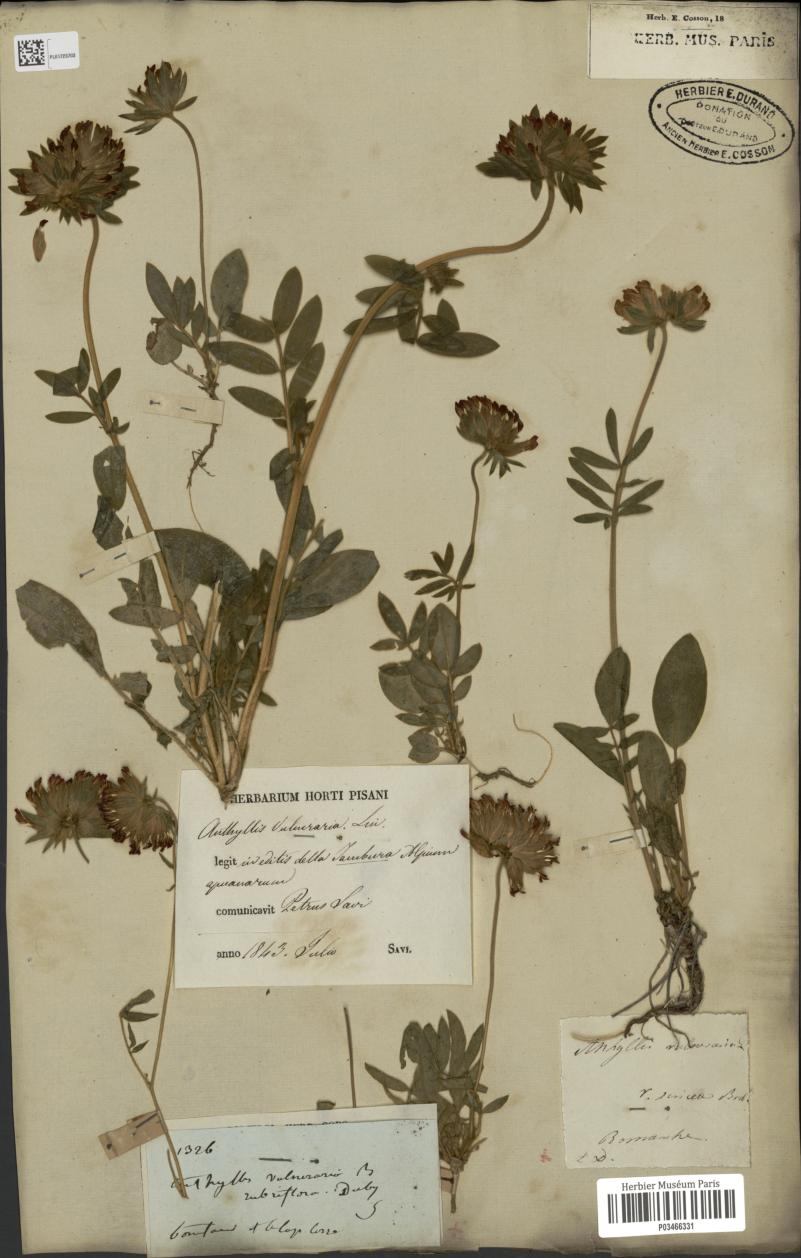 PL01725702
Herb. E. Cosson, 18
HERB. MUS. PARIS
HERBIER E. DURAND
DONATION
DU
DOCTEUR E. DURAND
ANCIEN HERBIER E. COSSON
HERBARIUM HORTI PISANI
Anthyllis Vulneraria. Lin.
legit in editis della Tambura Alpium
apuanarum
comunicavit Petrus Savi
anno 1843. Julio SAVI.
Anthyllis vulneraria
v. sericea
Romanche.
1326
Anthyllis vulneraria B
rubriflora. Duby
Herbier Muséum Paris
P03466331